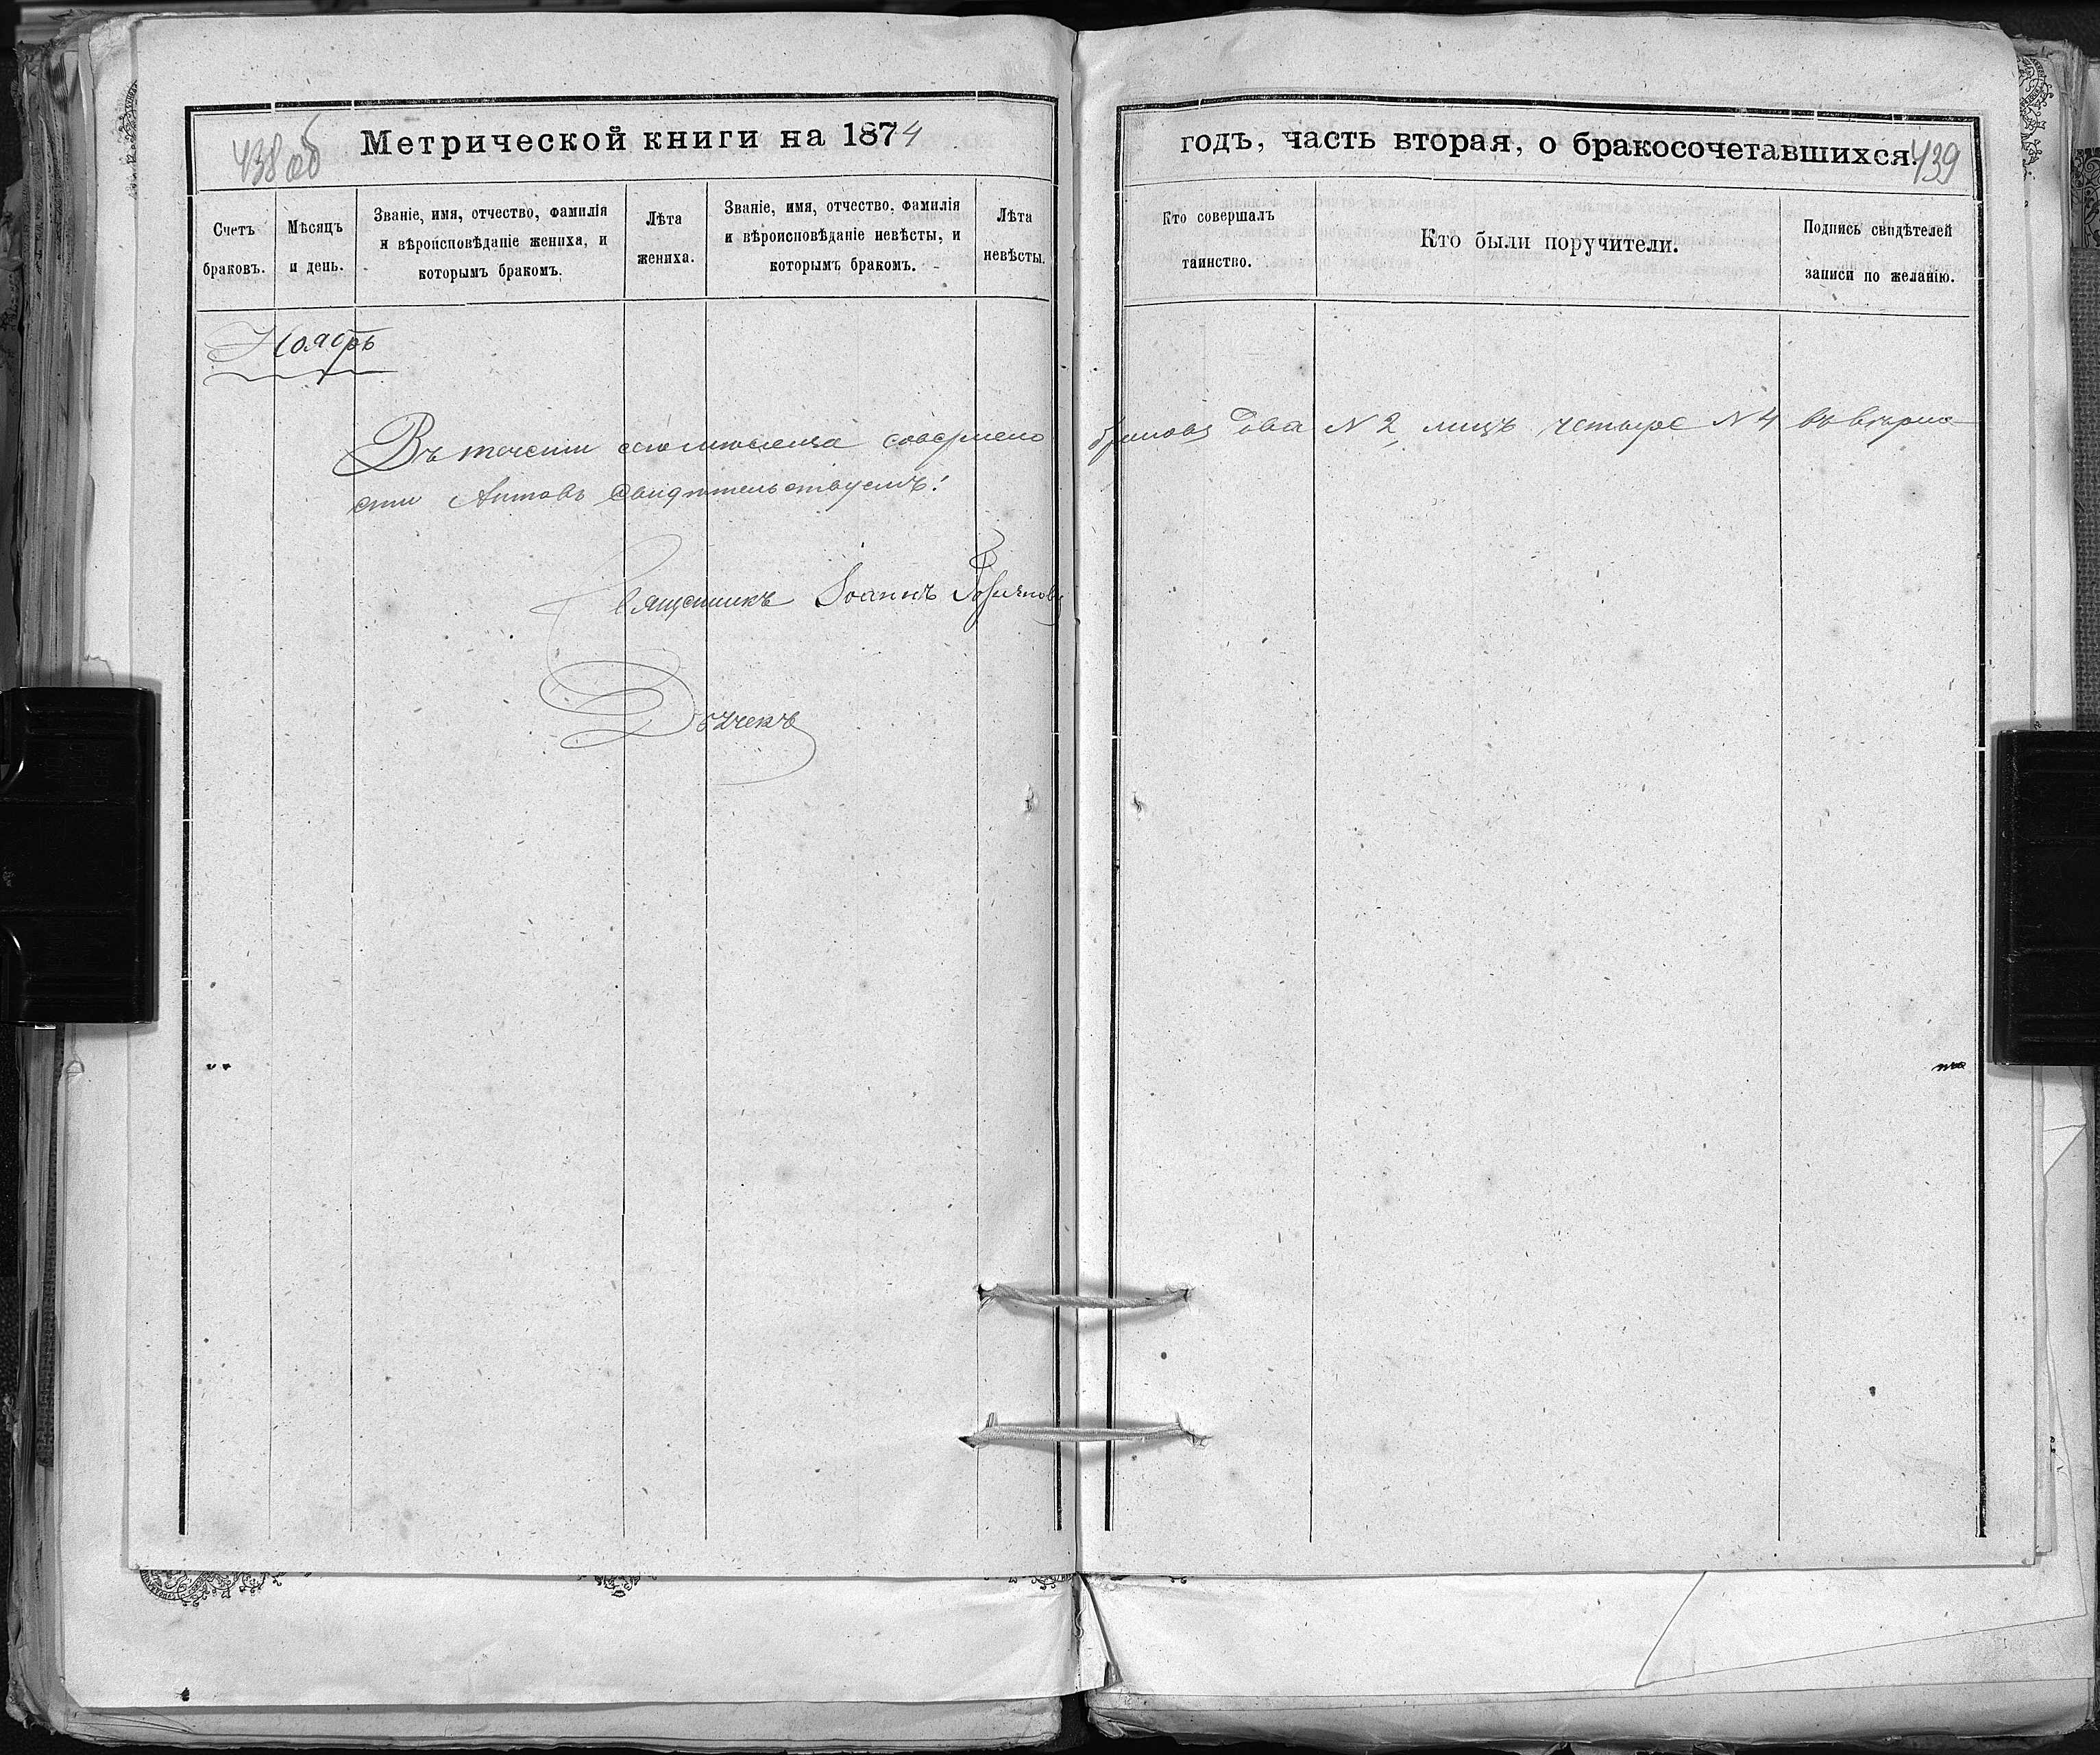 438 об
Метрической книги на 1874
Счетъ
браковъ.
Мѣсяцъ
и день.
Званіе, имя, отчество, фамилія
и вѣроисповѣданіе жениха, и
которымъ бракомъ.
Лѣта
жениха.
Званіе, имя, отчество, фамилія
и вѣроисповѣданіе невѣсты, и
которымъ бракомъ.
Лѣта
невѣсты.
Ноябрь
Въ теченіи сего мѣсяца совершено
сти Актовъ свидѣтельствуемъ:
Священникъ Іоаннъ
Дьячекъ
годъ, часть вторая, о бракосочетавшихся.
439
Кто совершалъ
таинство.
Кто были поручители.
Подпись свидѣтелей
записи по желанію.
браковъ два N 2, лицъ четыре N 4 въ вѣрно